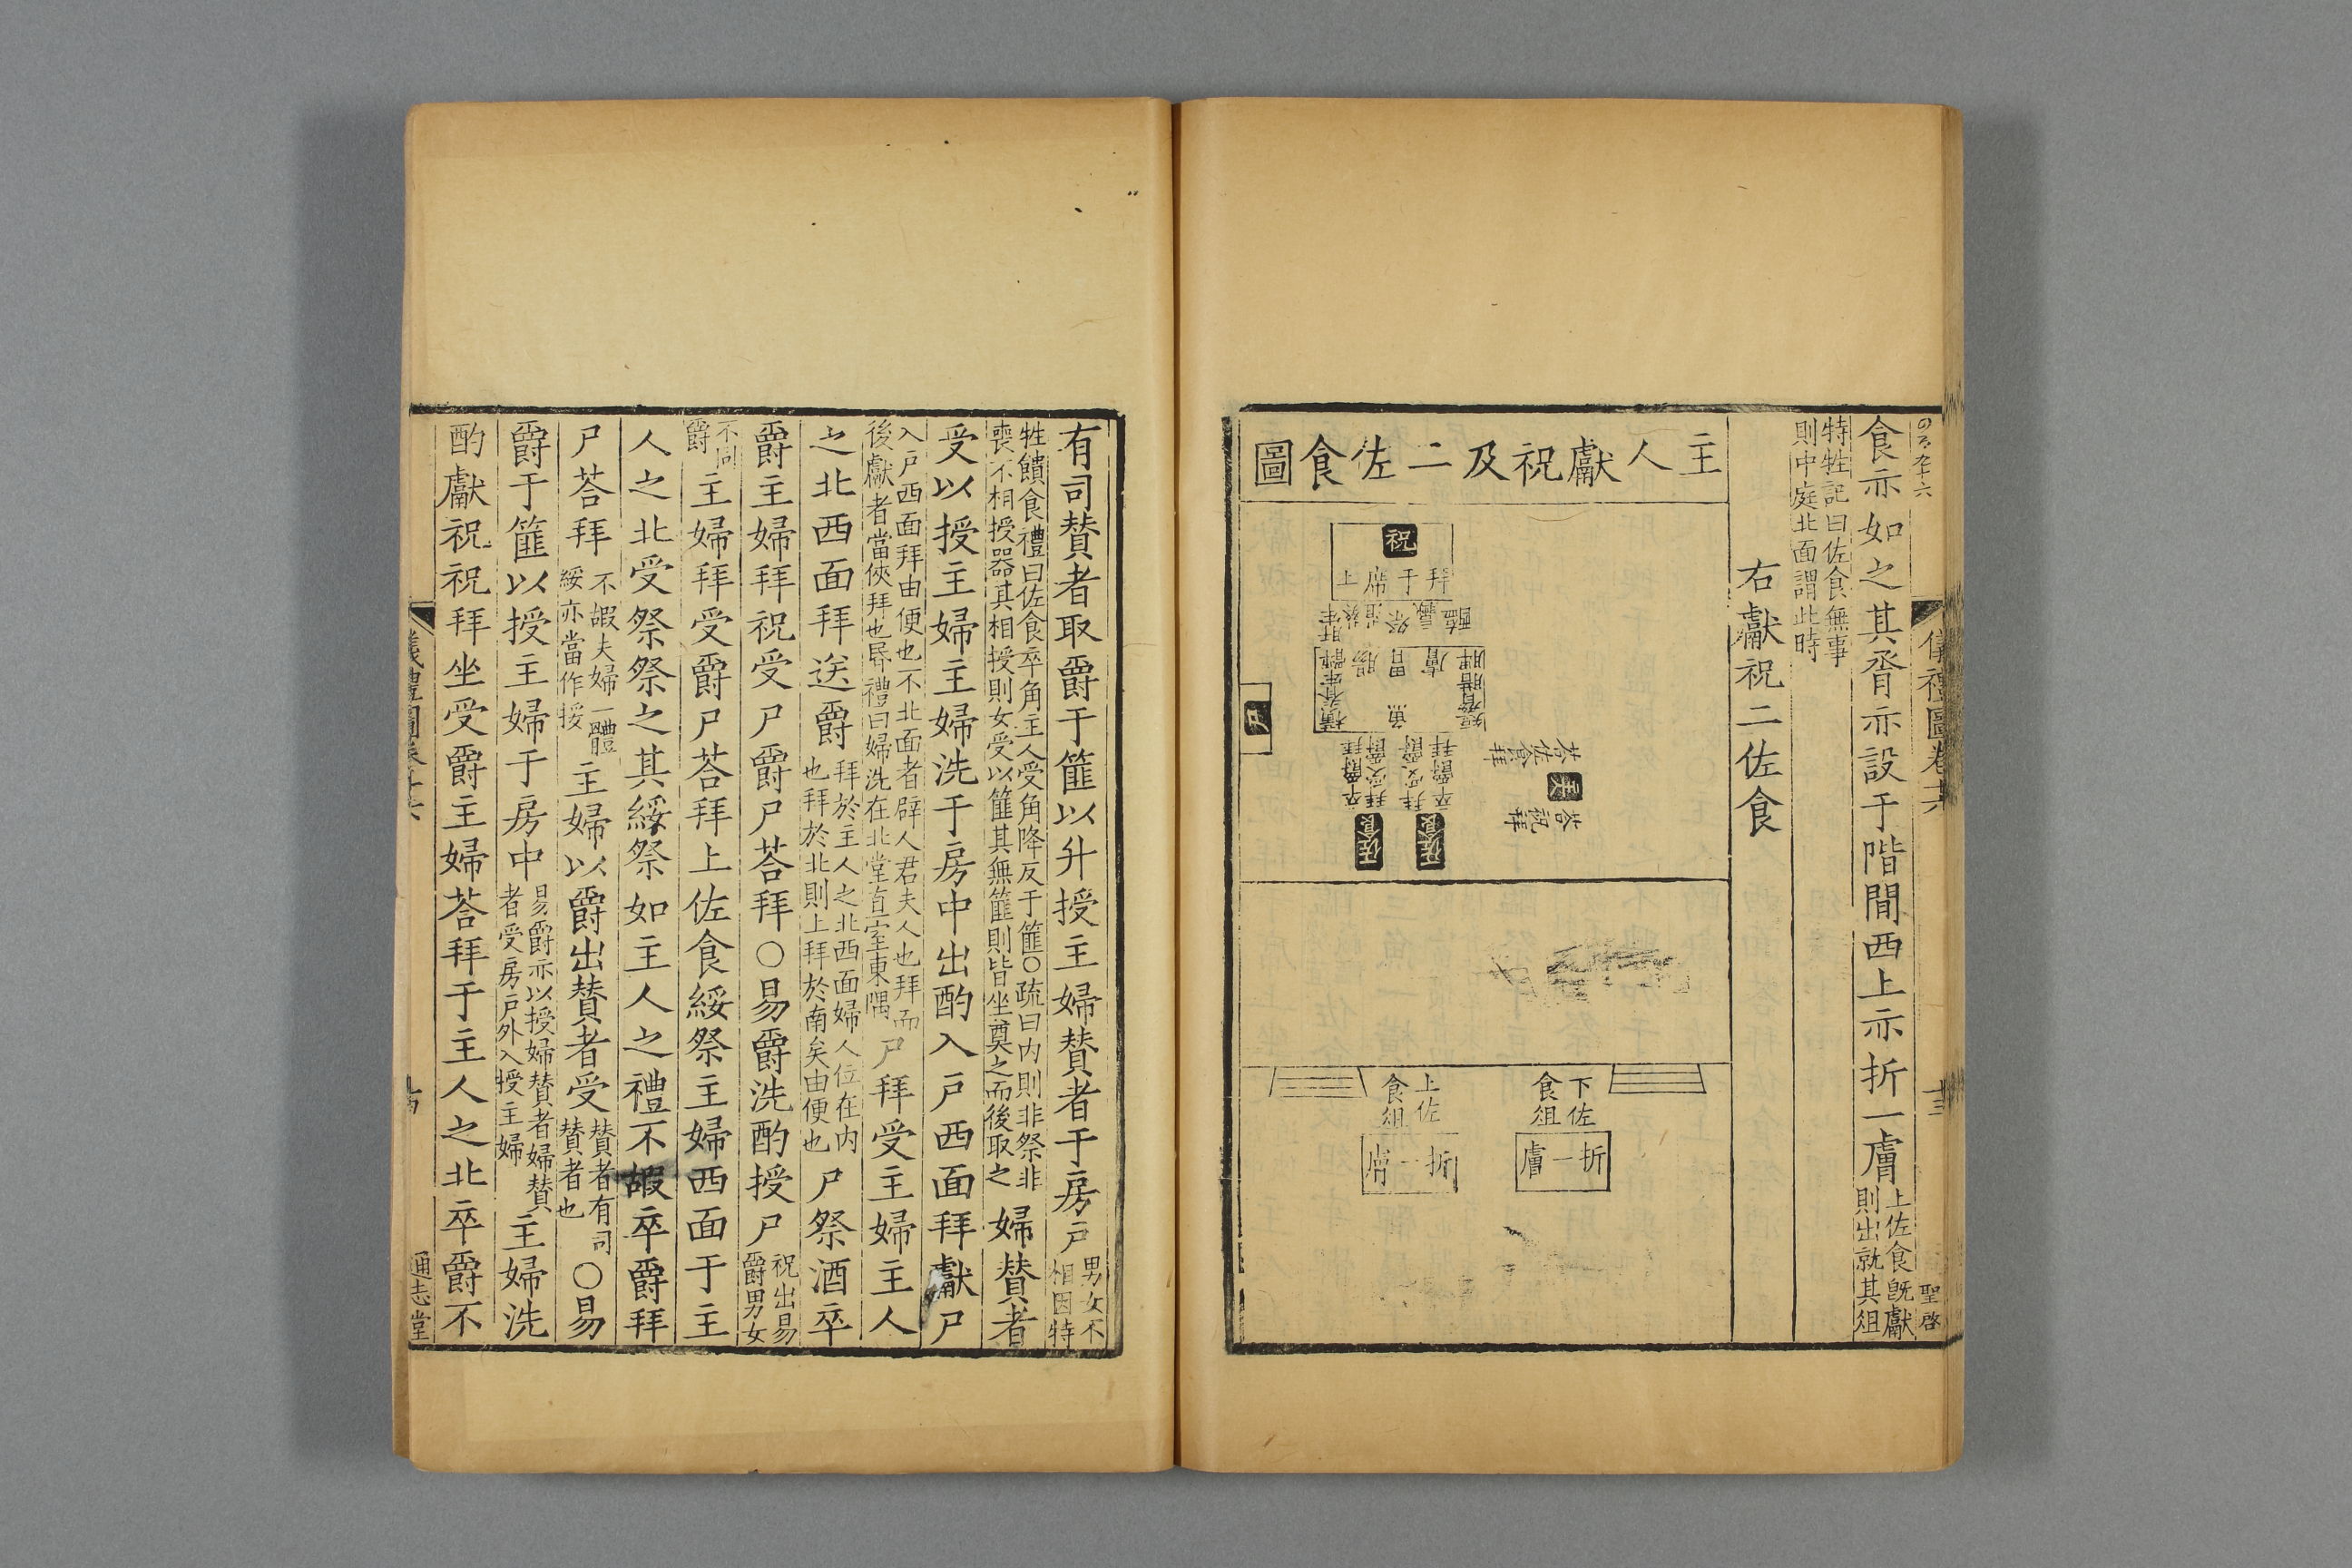 儀禮圖卷十六
十三
聖啓
食亦如之其脀亦設于階間西上亦折一膚上佐食旣獻則出就其俎
特牲記曰佐食無事則中庭北面謂此時
右獻祝二佐食
主人獻祝及二佐食圖
祝
拜于席上
醢
祭
膚
胃
腸
魚
佐食
佐食
荅佐食拜
荅祝拜
戶
下佐食俎
折一膚
上佐食俎
折一膚
有司賛者取爵于篚以升授主婦賛者于房戶男女不相因特
牲饋食禮曰佐食卒角主人受角降反于篚〇疏曰内則非祭非喪不相授器其相授則女受以篚其無篚則皆坐奠之而後取之婦賛者
受以授主婦主婦洗于房中出酌入戶西面拜獻尸
入戶西面拜由便也不北面者辟人君夫人也拜而後獻者當俠拜也昬禮曰婦洗在北堂直室東隅尸拜受主婦主人
之北西面拜送爵拜於主人之北西面婦人位在内也拜於北則上拜於南矣由便也尸祭酒卒
爵主婦拜祝受尸爵尸荅拜〇易爵洗酌授尸祝出易爵男女
不同爵主婦拜受爵尸荅拜上佐食綏祭主婦西面于主
人之北受祭祭之其綏祭如主人之禮不嘏卒爵拜
尸荅拜不嘏夫婦一體綏亦當作挼主婦以爵出賛者受賛者有司賛者也〇易
爵于篚以授主婦于房中易爵亦以授婦賛者婦賛者受房戶外入授主婦主婦洗
酌獻祝祝拜坐受爵主婦荅拜于主人之北卒爵不
儀禮圖卷十六
十四
通志堂